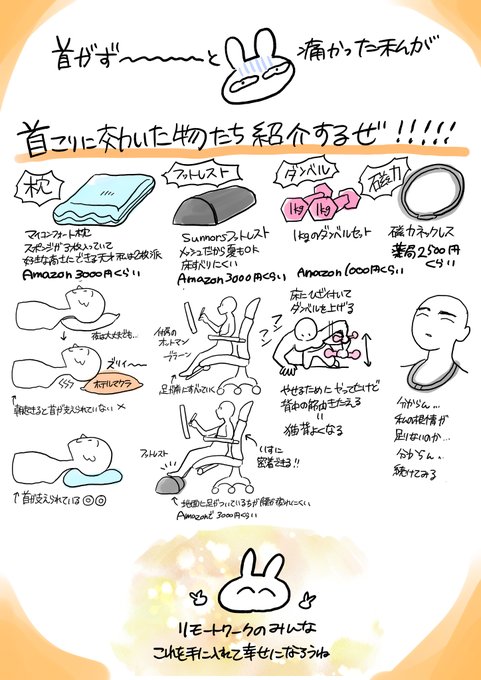 首がず〜〜〜〜と
痛かった私が
首こりに効いた物たち紹介するぜ!!!!!
枕
マイコンフォート枕
スポンジが3枚入っていて
好きな高さにできる天才 私は2枚派
Amazon 3000円くらい
↓夜は大丈夫でも…
ズリィー
ホテルマクラ
↑朝起きると首が支えられていない ×
↑首が支えられている◎◎
フットレスト
Sunnorsフットレスト
メッシュだから夏もOK
床すべりにくい
Amazon 3000円くらい
付属の
オットマン
ブラーン
↑足が前にすべっていく
フットレスト
いすに
密着できる!!
↑地面に足がついているから腰が疲れにくい
Amazonで3000円くらい
ダンベル
1kg
1kg
1kgのダンベルセット
Amazon 1000円くらい
床にひざ付いて
ダンベルを上げる
フン
フン
やせるためにヤッてたけど
背中の筋肉きたえる
=
猫背よくなる
磁力
磁力ネックレス
薬局2500円
くらい
分からん…
私の根情が
足りないのか…
分からん…
続けてみる
リモートワークのみんな
これを手に入れて幸せになろうね